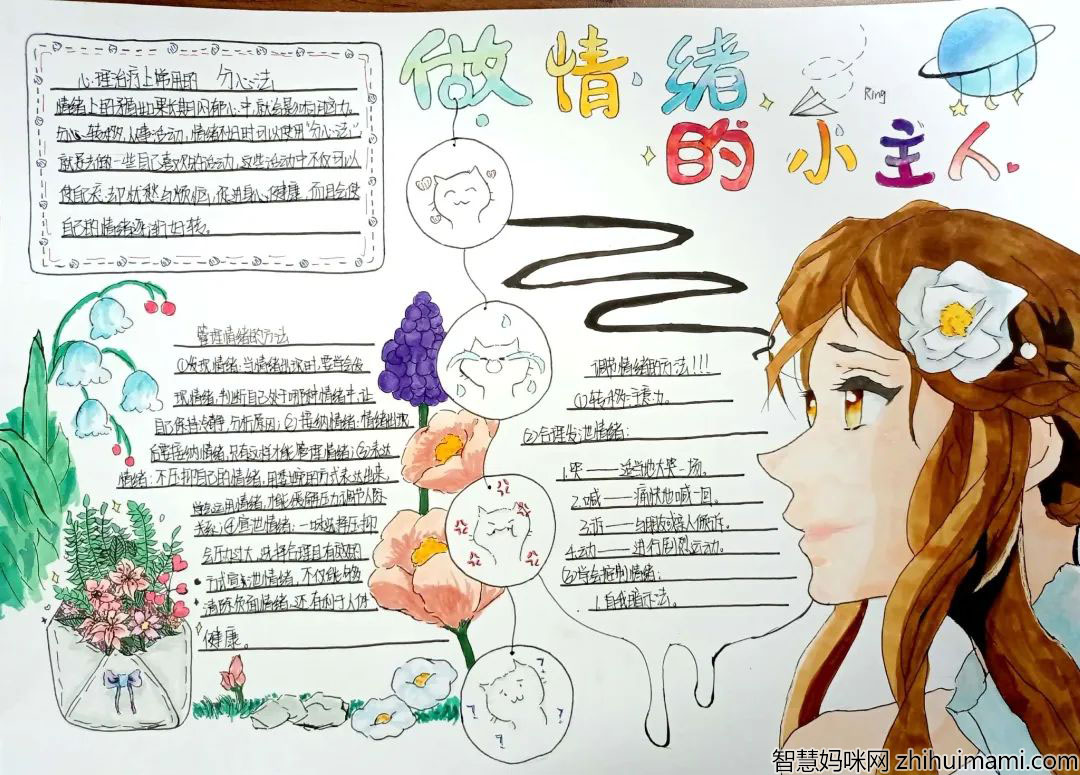 做情绪
的小主人
Ring
心理治疗上常用的 分心法
情绪上的 如果长期闷在心中,就会影响脑力。
分心、转移 从事活动,情绪不好时可以使用"分心法",
就是去做一些自己喜欢的活动,这些活动中不仅可以
使自己忘却忧愁与烦恼,促进身心健康,而且会使
自己的情绪逐渐好转。
管理情绪的方法
①发现情绪:当情绪出现时,要学会发
现情绪,判断自己处于哪种情绪中,让
自己保持冷静,分析原因;②接纳情绪:情绪出现
后要接纳情绪,只有这样才能管理情绪;③表达
情绪:不压抑自己的情绪,用恰当的方式表达出来,
学会运用情绪,才能缓解压力,调节人际
关系;④宣泄情绪:一味选择压抑
会压力过大,选择合理且有效的
方式宣泄情绪,不仅能够
清除负面情绪,还有利于人体
健康。
调节情绪的方法!!!
①转移注意力。
②合理发泄情绪:
1.哭——适当地大哭一场。
2.喊——痛快地喊一回。
3.诉——向朋友或亲人倾诉。
4.动——进行剧烈运动。
③学会控制情绪:
1.自我暗示法。
智慧妈咪网 zhihuimami.com